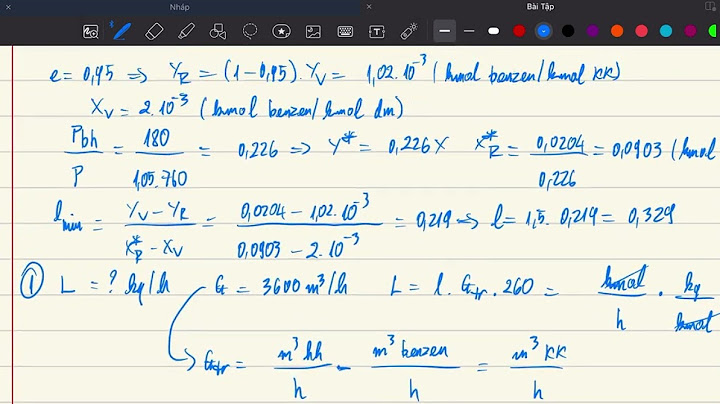 Nháp
Bài Tập
e = 0,95 ⇒ Y_R = (1 - 0,95). Y_V = 1,02.10^-3 (kmol benzen/kmol KK)
X_V = 2.10^-3 (kmol benzen/kmol dm)
Pbh/P = 180/1,05.760 = 0,226 ⇒ Y* = 0,226X X*_R = 0,0204/0,226 = 0,0903 (kmol
l_min = (Y_V - Y_R)/(X*_R - X_V) = (0,0204 - 1,02.10^-3)/(0,0903 - 2.10^-3) = 0,219 ⇒ l = 1,5. 0,219 = 0,329
① L = ? kg/h G = 3600 m³/h L = l. Gtr. 260 = kmol/h . kg/kmol
Gtr = m³ hh/h - m³ benzen/h = m³ KK/h